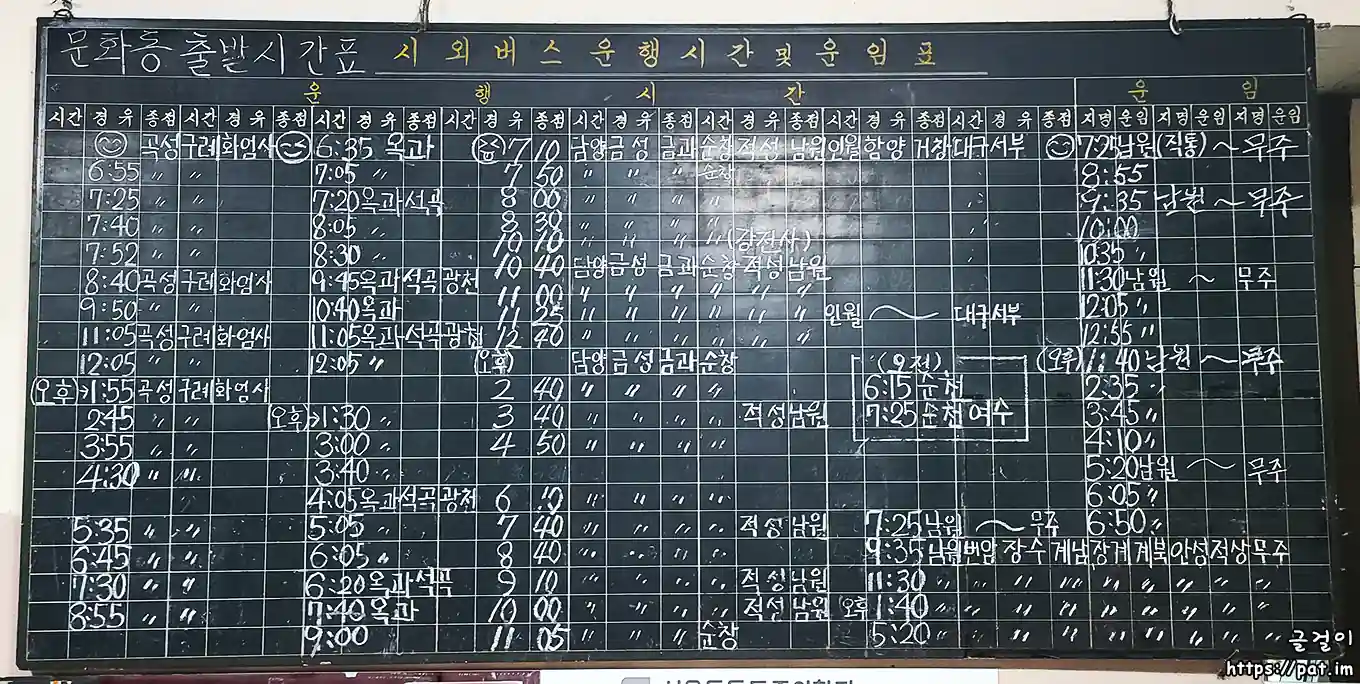 문화동 출발시간표 시외버스운행시간및운임표
운 행 시 간 운 임
시간 경유 종점 시간 경유 종점 시간 경유 종점 시간 경유 종점 시간 경유 종점 시간 경유 종점 시간 경유 종점 지명 운임 지명 운임 지명 운임
곡성 구례 화엄사 6:35 옥과 7 10 담양 금성 금과 순창 적성 남원 인월 함양 거창 대구서부 7:25 남원 (직통) ~ 무주
6:55 〃 〃 7:05 〃 7 50 〃 〃 〃 순창 8:55
7:25 〃 〃 7:20 옥과 석곡 8 00 〃 〃 〃 〃 9:35 남원 ~ 무주
7:40 〃 〃 8:05 〃 8 30 〃 〃 〃 〃 10:00
7:52 〃 〃 8:30 〃 10 10 〃 〃 〃 〃 (강천사) 10:35 〃
8:40 곡성 구례 화엄사 9:45 옥과 석곡 광천 10 40 담양 금성 금과 순창 적성 남원 11:30 남원 ~ 무주
9:50 〃 〃 10:40 옥과 11 00 〃 〃 〃 〃 〃 〃 12:05 〃
11 25 〃 〃 〃 〃 〃 〃 인월 ~ 대구서부
11:05 곡성 구례 화엄사 11:05 옥과 석곡 광천 12 40 〃 〃 〃 〃 〃 〃 12:55 〃
12:05 〃 〃 12:05 〃 (오후) 담양 금성 금과 순창 (오전) (오후) 1:40 남원 ~ 무주
(오후) 1:55 곡성 구례 화엄사 2 40 〃 〃 〃 〃 6:15 순천 2:35 〃
2:45 〃 〃 오후) 1:30 〃 3 40 〃 〃 〃 〃 적성 남원 7:25 순천 여수 3:45 〃
3:55 〃 〃 3:00 〃 4 50 〃 〃 〃 〃 4:10 〃
4:30 〃 〃 3:40 〃 5:20 남원 ~ 무주
4:05 옥과 석곡 광천 6 10 〃 〃 〃 〃 6:05 〃
5:35 〃 〃 5:05 〃 7 40 〃 〃 〃 〃 적성 남원 7:25 남원 ~ 무주 6:50 〃
6:45 〃 〃 6:05 〃 8 40 〃 〃 〃 〃 9:35 남원 번암 장수 계남 장계 계북 안성 적상 무주
7:30 〃 〃 6:20 옥과 석곡 9 10 〃 〃 〃 〃 적성 남원 11:30 〃 〃 〃 〃 〃 〃 〃 〃 〃
8:55 〃 〃 7:40 옥과 10 00 〃 〃 〃 〃 적성 남원 오후 1:40 〃 〃 〃 〃 〃 〃 〃 〃 〃
9:00 11 05 〃 〃 〃 순창 5:20 〃 〃 〃 〃 〃 〃 〃 〃 〃
글걸이
https://pat.im